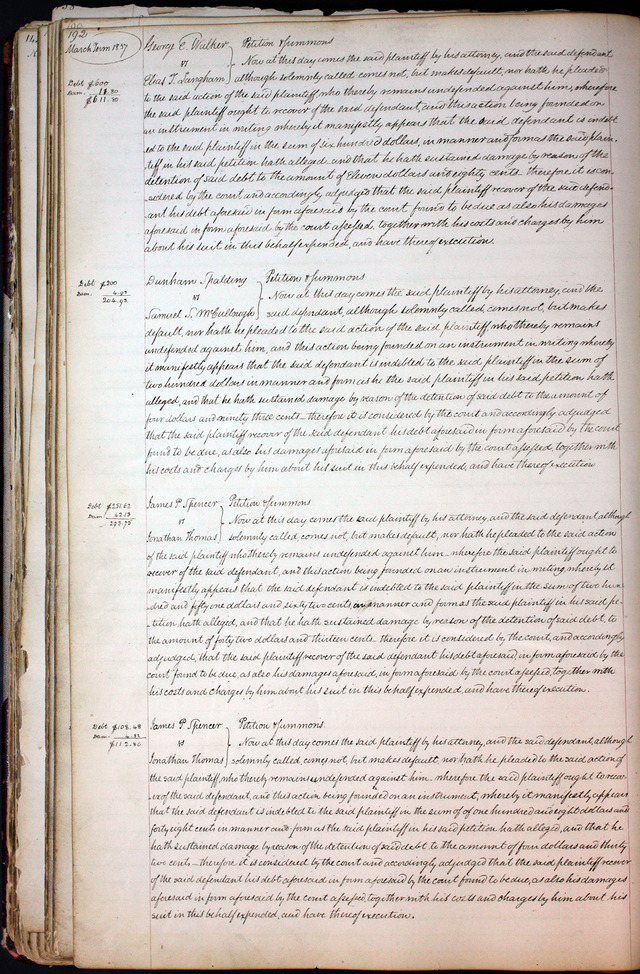 192
March Term 1837
George C. Walker } Petition & Summons
vs Now at this day comes the said plaintiff by his attorney, and the said defendant
Elias T. Langham } although solemnly called comes not, but makes default, nor hath he pleaded
Debt $600
Dam. 11.80
$611.80
to the said action of the said plaintiff who thereby remains undefended against him, wherefore
the said plaintiff ought to recover of the said defendant, and this action being founded on
an instrument in writing whereby it manifestly appears that the said defendant is indebt
ed to the said plaintiff in the sum of six hundred dollars, in manner and form as the said plain-
tiff in his said petition hath alleged and that he hath sustained damage by reason of the
detention of said debt to the amount of Eleven dollars and eighty cents. Therefore it is con-
sidered by the court and accordingly adjudged that the said plaintiff recover of the said defend-
ant his debt aforesaid in form aforesaid by the court found to be due as also his damages
aforesaid in form aforesaid by the court assessed, together with his costs and charges by him
about his suit in this behalf expended, and have thereof execution.
Dunham Spalding } Petition & Summons
Debt $200
Dam. 4.93
204.93
vs Now at this day comes the said plaintiff by his attorney, and the
Samuel S. McCullough } said defendant, although solemnly called comes not, but makes
default, nor hath he pleaded to the said action of the said plaintiff who thereby remains
undefended against him, and this action being founded on an instrument in writing whereby
it manifestly appears that the said defendant is indebted to the said plaintiff in the sum of
two hundred dollars in manner and form as he the said plaintiff in his said petition hath
alleged, and that he hath sustained damage by reason of the detention of said debt to the amount of
four dollars and ninety three cents – therefore it is considered by the court and accordingly adjudged
that the said plaintiff recover of the said defendant his debt aforesaid in form aforesaid by the court
found to be due, as also his damages aforesaid in form aforesaid by the court assessed, together with
his costs and charges by him about his suit in this behalf expended, and have thereof execution
James P. Spencer } Petition & Summons
Debt $251.62
Dam 42.13
293.75
vs Now at this day comes the said plaintiff by his attorney, and the said defendant although
Jonathan Thomas } solemnly called, comes not, but makes default, nor hath he pleaded to the said action
of the said plaintiff who thereby remains undefended against him – wherefore the said plaintiff ought to
recover of the said defendant, and this action being founded on an instrument in writing whereby it
manifestly appears that the said defendant is indebted to the said plaintiff in the sum of two hun
dred and fifty one dollars and sixty two cents, in manner and form as the said plaintiff in his said pe-
tition hath alleged, and that he hath sustained damage by reason of the detention of said debt, to
the amount of forty two dollars and thirteen cents – therefore it is considered by the court, and accordingly
adjudged, that the said plaintiff recover of the said defendant his debt aforesaid, in form aforesaid by the
court found to be due, as also his damages aforesaid, in form aforesaid by the court assessed, together with
his costs and charges by him about his suit in this behalf expended, and have thereof execution.
James P. Spencer } Petition & Summons.
Debt $108.48
Dam 4.32
$112.80
vs Now at this day comes the said plaintiff by his attorney, and the said defendant, although
Jonathan Thomas } solemnly called, comes not, but makes default, nor hath he pleaded to the said action of
the said plaintiff, who thereby remains undefended against him – wherefore the said plaintiff ought to recov-
er of the said defendant, and this action being founded on an instrument, whereby it manifestly appears
that the said defendant is indebted to the said plaintiff in the sum of of one hundred and eight dollars and
forty eight cents in manner and form as the said plaintiff in his said petition hath alleged, and that he
hath sustained damage by reason of the detention of said debt to the amount of four dollars and thirty
two cents – therefore it is considered by the court and accordingly adjudged that the said plaintiff recover
of the said defendant his debt aforesaid in form aforesaid by the court found to be due, as also his damages
aforesaid in form aforesaid by the court assessed, together with his costs and charges by him about his
suit in this behalf expended, and have thereof execution.